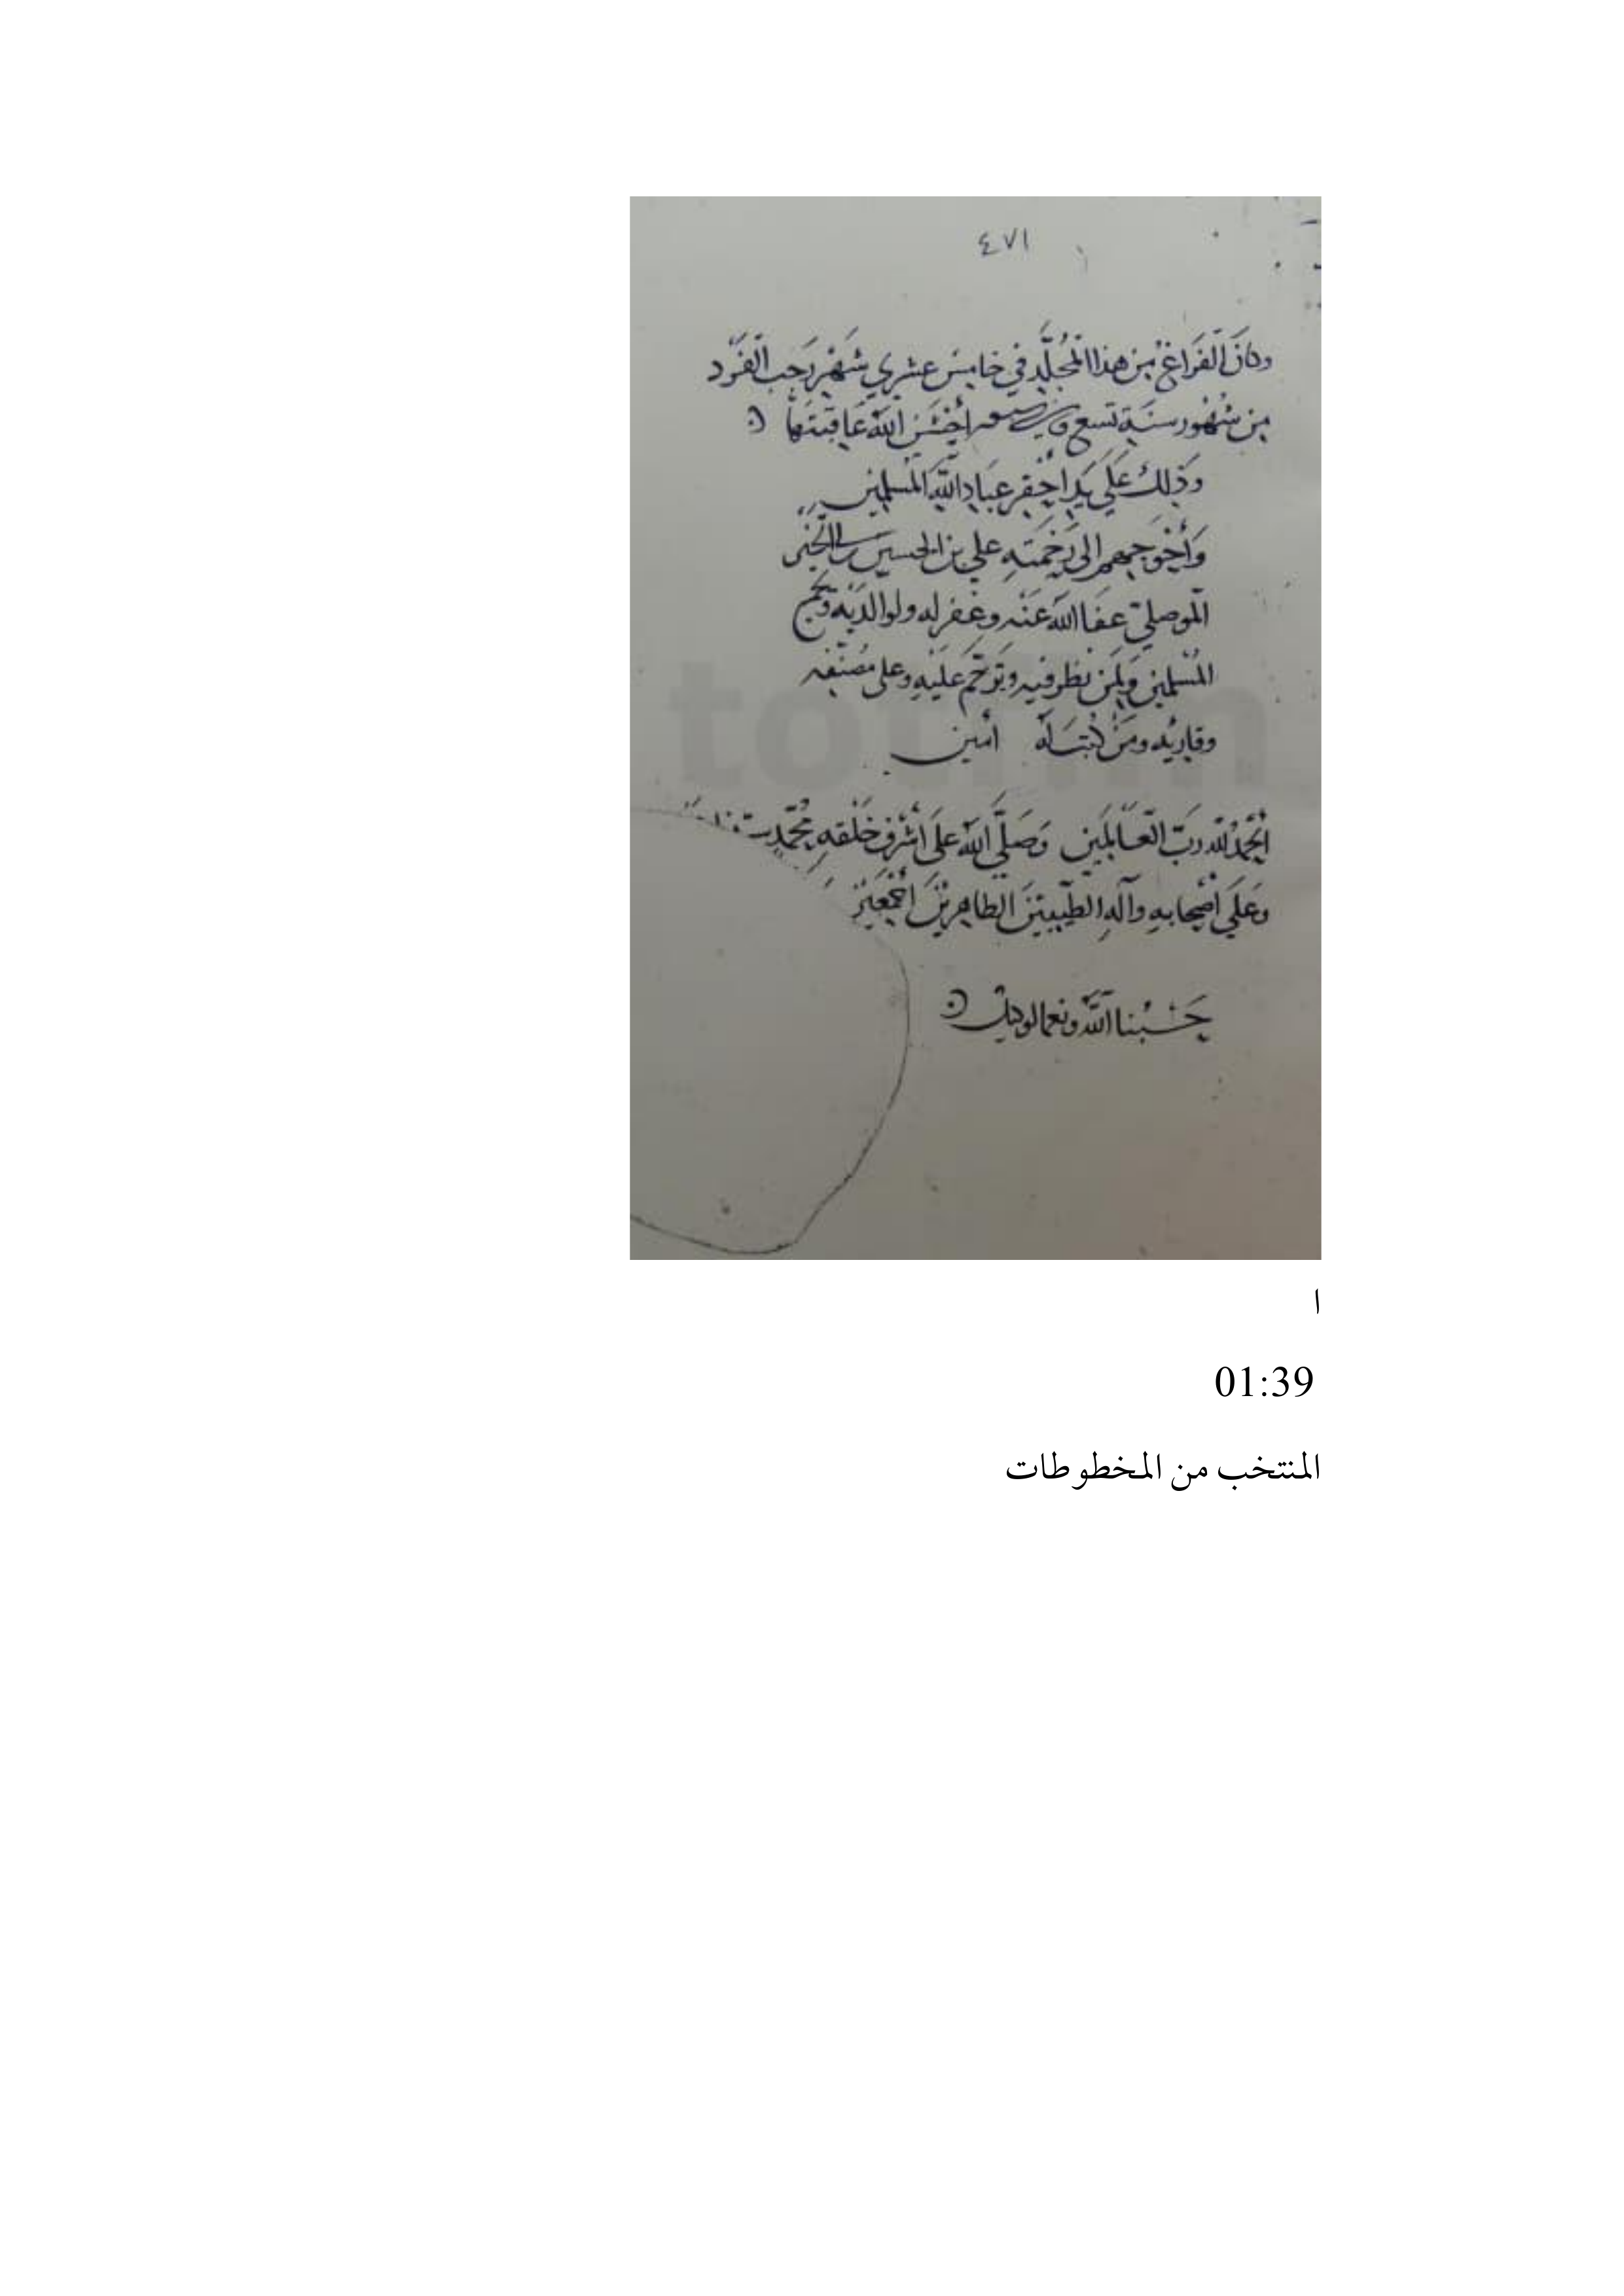 ٤٧١
وكان الفراغ من هذا المجلد في خامس عشري شهر رجب الفرد
من شهور سنة تسع أحسن الله عاقبتها
وذلك على يد احقر عباد الله المسلمين
وأحوجهم الى رحمته علي بن الحسين
الموصلي عفا الله عنه وغفر له ولوالديه
المسلمين ولمن نظر فيه وترحم عليه وعلى مصنفه
وقاريه ومن كتب له أمين
الحمد لله رب العالمين وصلى الله على أشرف خلقه محمد
وعلى أصحابه وآله الطيبين الطاهرين أجمعين
حسبنا الله ونعم الوكيل
ا
01:39
المنتخب من المخطوطات